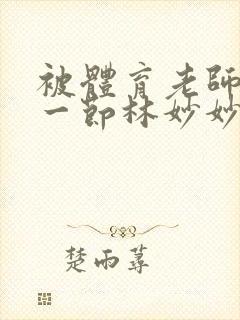 被體育老師
一節林妙妙
楚雨蕁